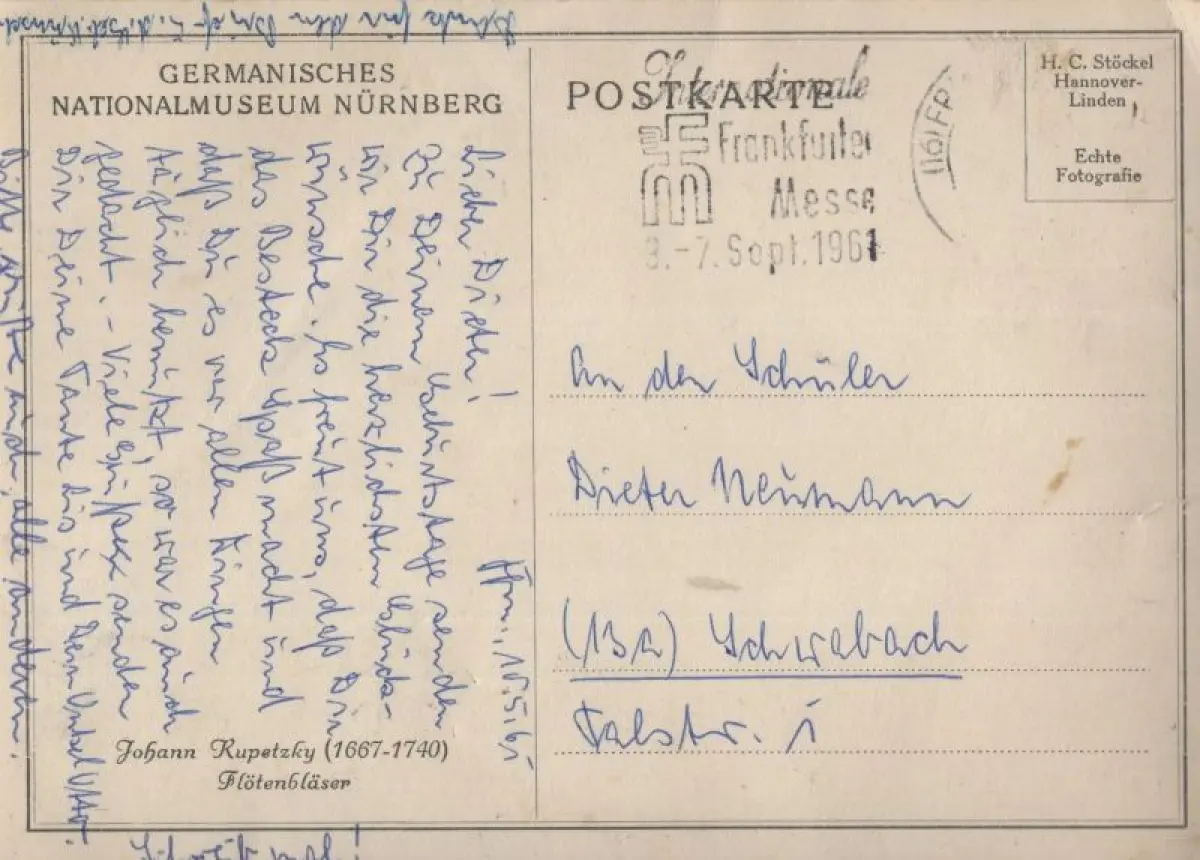 GERMANISCHES
NATIONALMUSEUM NÜRNBERG
Ffm., 10.5.61
Lieber Dieter!
Zu Deinem Geburtstage senden
wir Dir die herzlichsten Glück-
wünsche. Es freut uns, daß Dir
das Besteck Spaß macht und
daß Du es vor allen Dingen
täglich benützt, so war es auch
gedacht. - Viele Grüße senden
Dir Deine Tante Lis und Dein Onkel Otto.
Bitte grüße auch alle andern.
Schreib mal!
Danke für den Brief
Johann Kupetzky (1667-1740)
Flötenbläser
POSTKARTE
Internationale
Frankfurter
Messe
3.-7. Sept. 1961
H. C. Stöckel
Hannover-
Linden
Echte
Fotografie
An den Schüler
Dieter Neumann
(13a) Schwabach
Talstr. 1